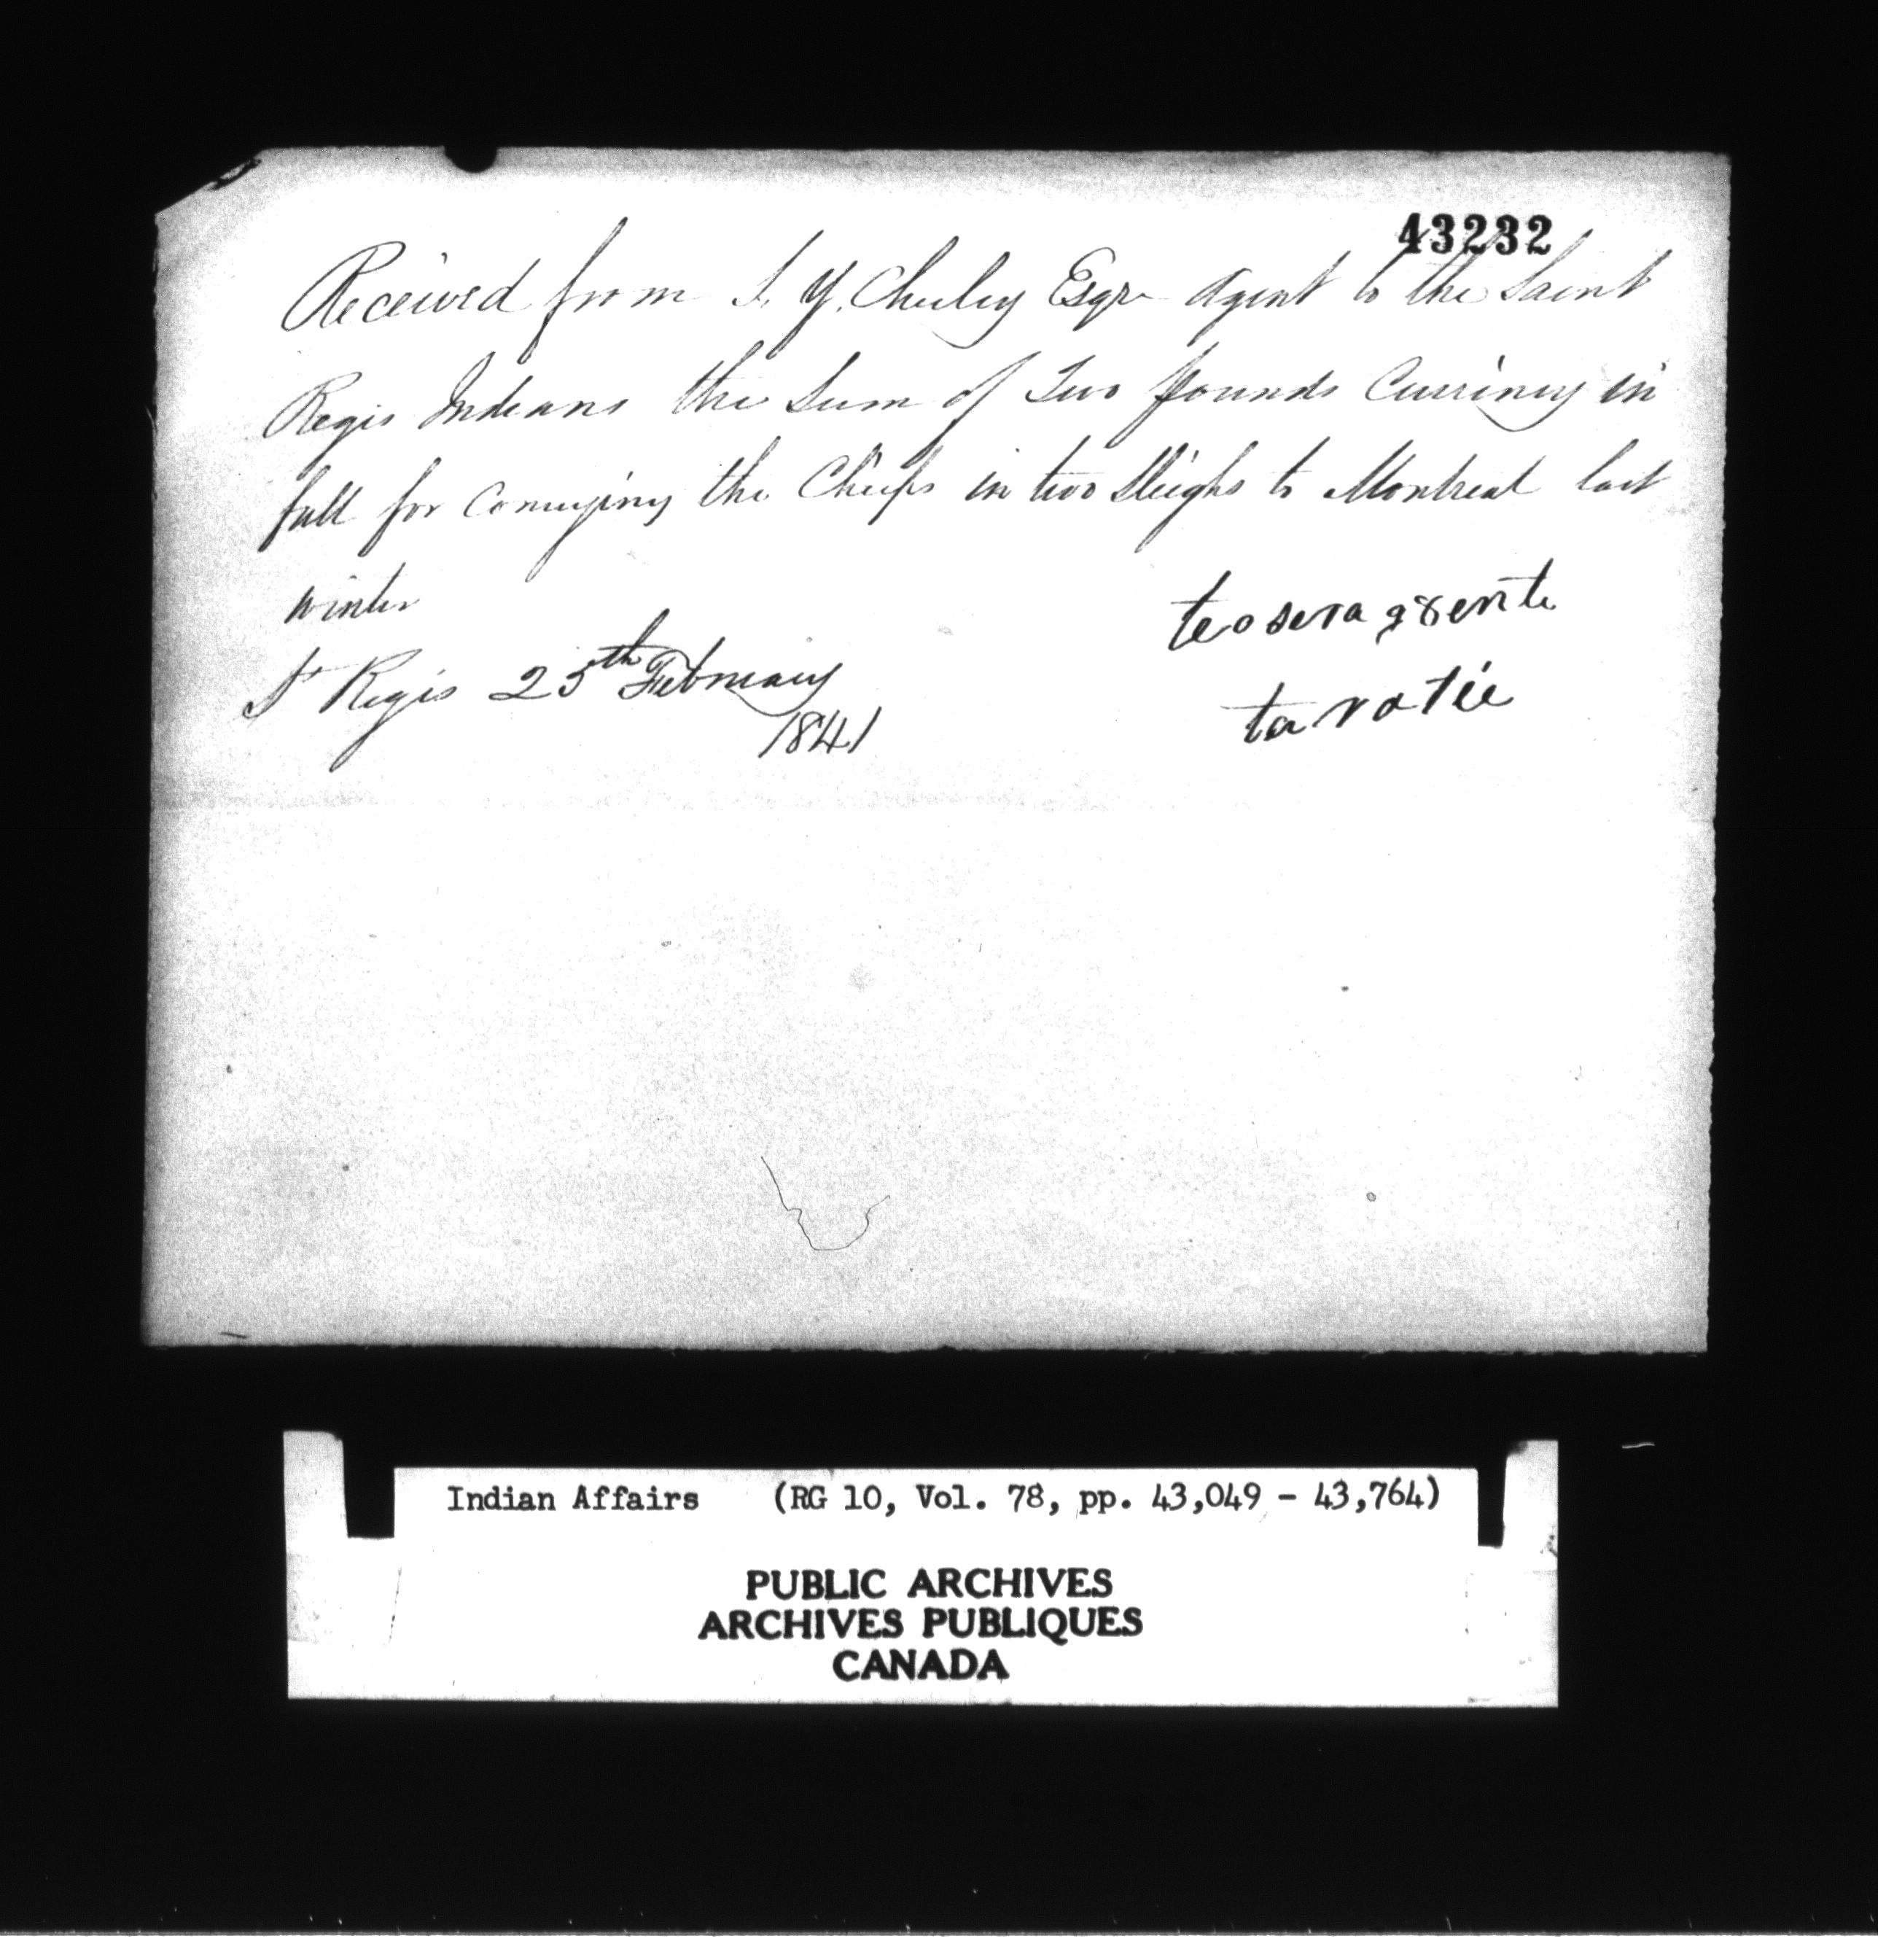 43232
Received from S. Y. Chesley Esqre Agent to the Saint
Regis Indians the Sum of Two pounds Currency in
full for Conveying the Chiefs in two Sleighs to Montreal last
winter
St Regis 25th February
1841
teoseragȣente
tarotie
Indian Affairs (RG 10, Vol. 78, pp. 43,049 - 43,764)
PUBLIC ARCHIVES
ARCHIVES PUBLIQUES
CANADA